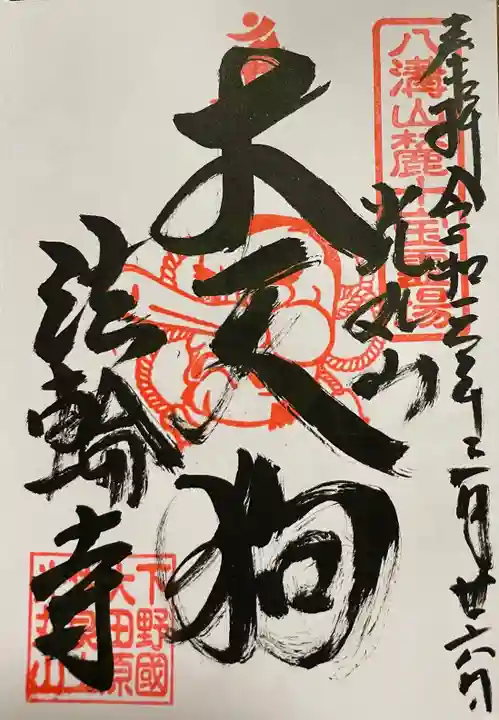 奉拝 令和三年三月廿六日
八溝山麓十宝霊場
光丸山
大天狗
法輪寺
下野國
大田原
光丸山